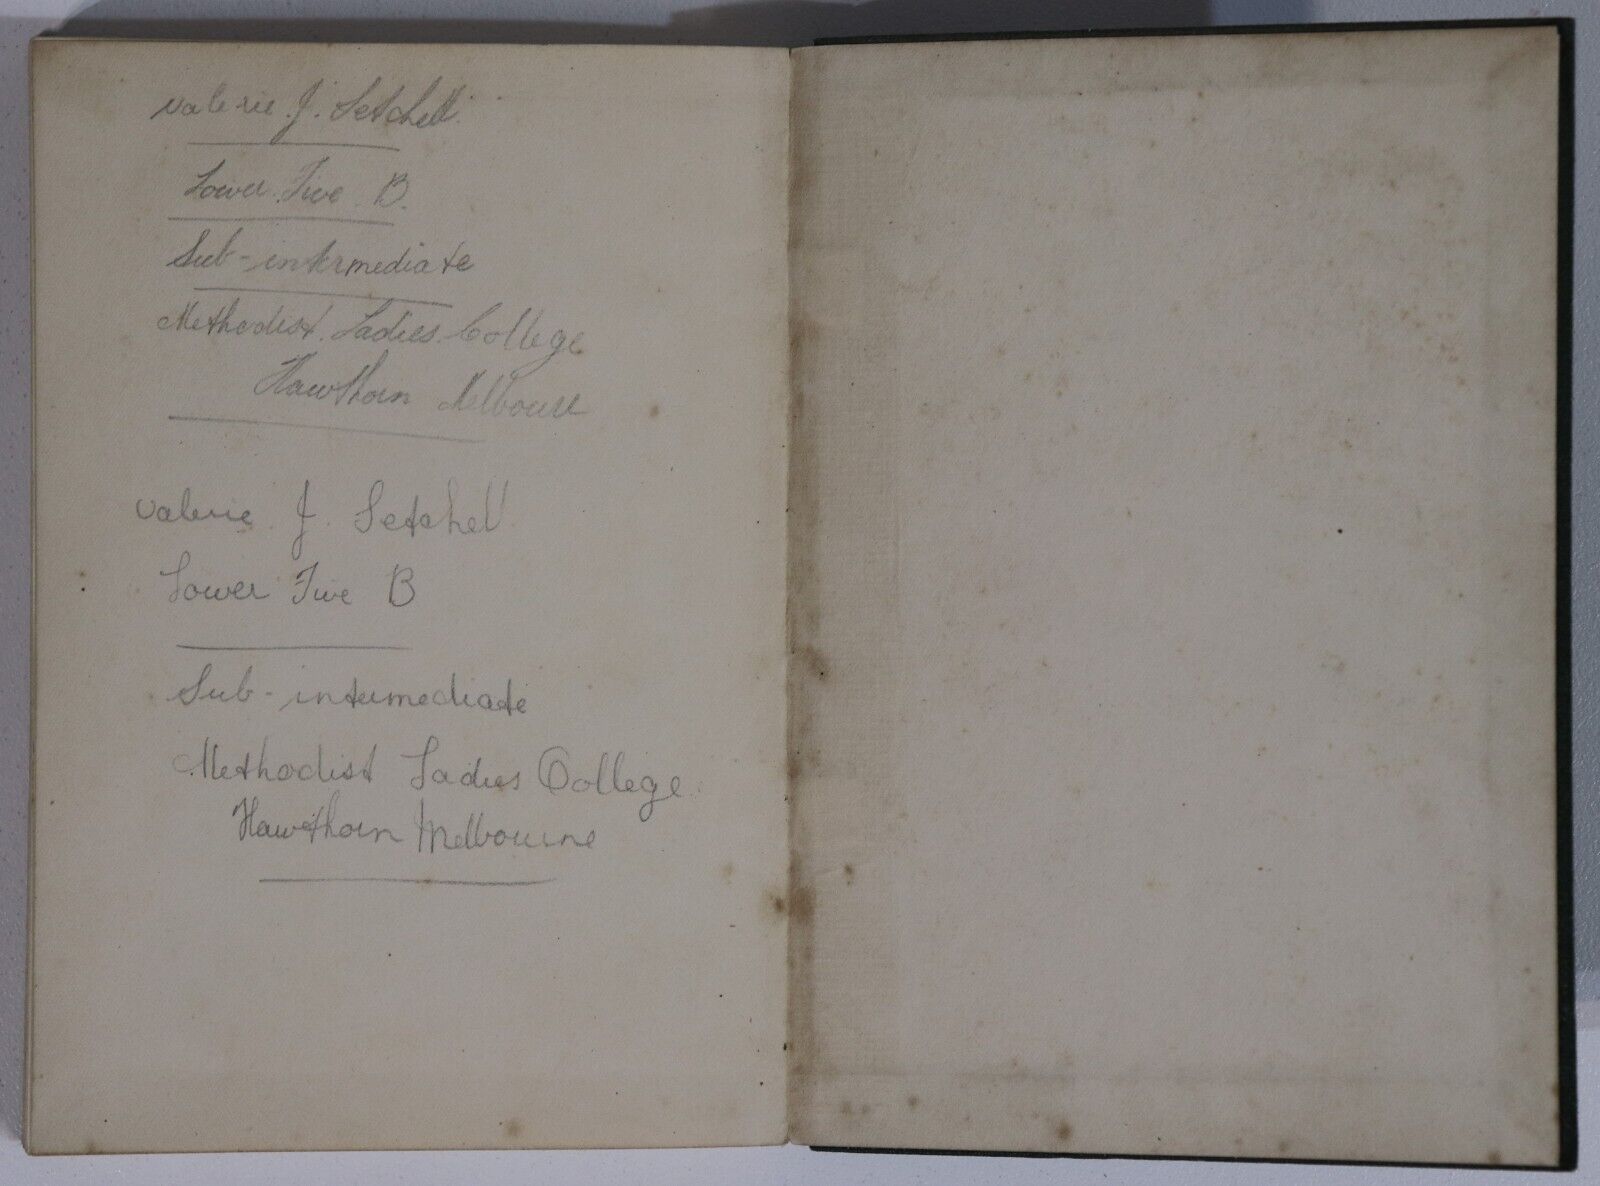 Valerie J. Setchell.
Lower Five B.
Sub-intermediate
Methodist Ladies College
Hawthorn Melbourne
Valerie J. Setchell
Lower Five B
Sub-intermediate
Methodist Ladies College
Hawthorn Melbourne